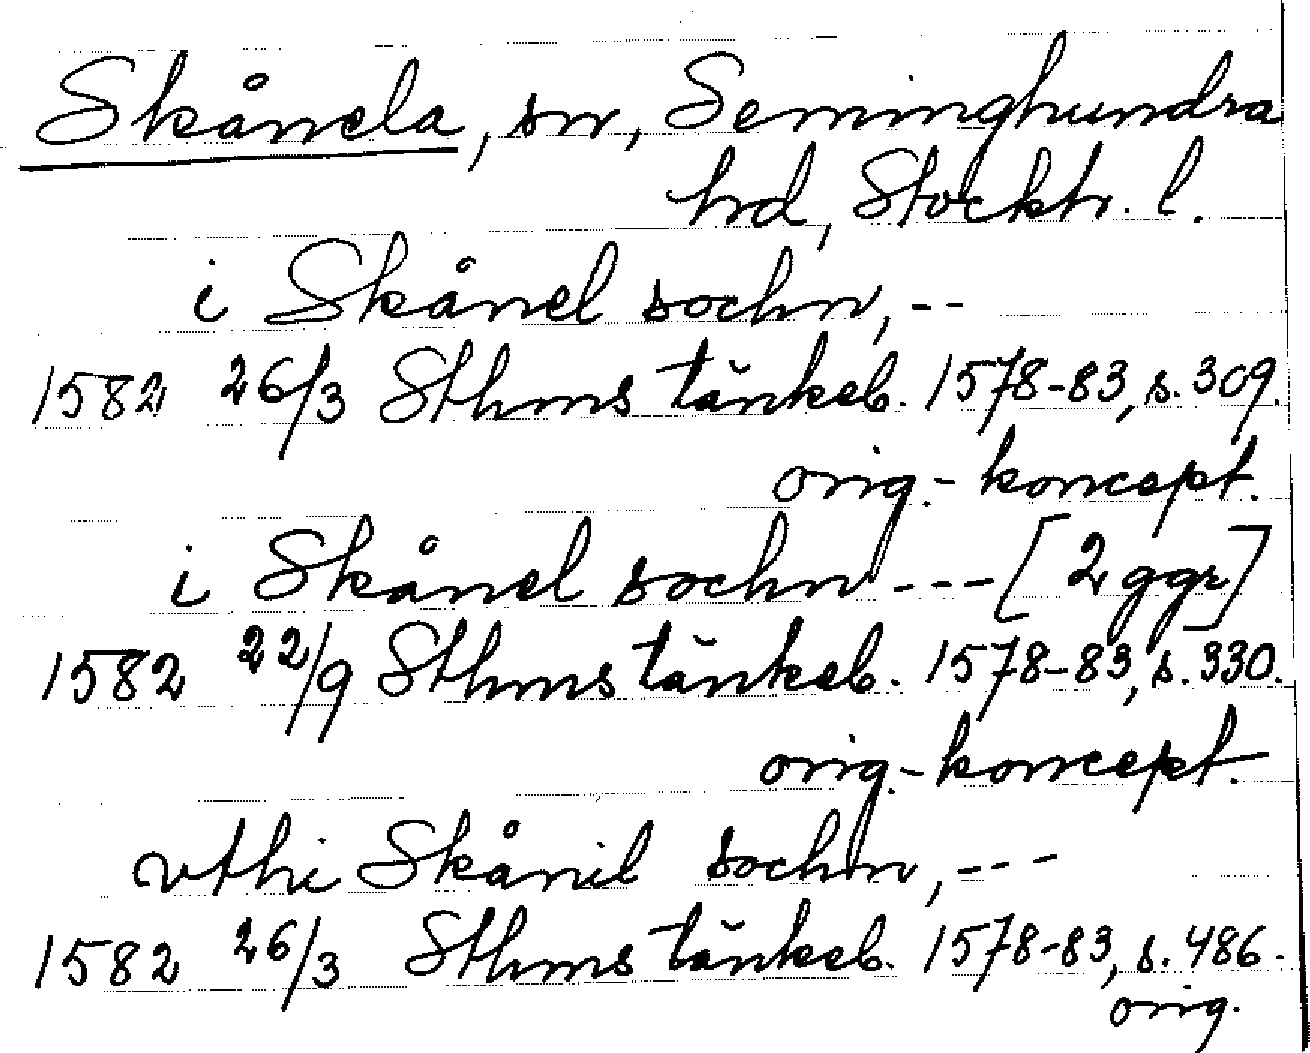 Skånela, sn, Seminghundra
hd, Stockh. l.
i Skånel sochn, --
1582 26/3 Sthms tänkeb. 1578-83, s. 309.
orig.- koncept.
i Skånel sochn --- [2 ggr]
1582 22/9 Sthms tänkeb. 1578-83, s. 330.
orig.- koncept.
vthi Skånil sochn, ---
1582 26/3 Sthms tänkeb. 1578-83, s. 486.
orig.